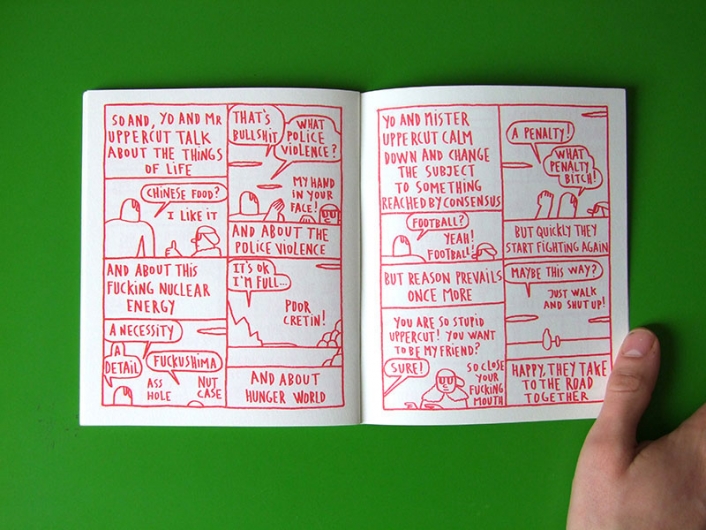 SO AND, YO AND MR
UPPERCUT TALK
ABOUT THE THINGS
OF LIFE
CHINESE FOOD?
I LIKE IT
AND ABOUT THIS
FUCKING NUCLEAR
ENERGY
A NECESSITY
A
DETAIL
FUCKUSHIMA
ASS
HOLE
NUT
CASE
THAT'S
BULLSHIT
WHAT
POLICE
VIOLENCE?
MY HAND
IN YOUR
FACE!
AND ABOUT THE
POLICE VIOLENCE
IT'S OK
I'M FULL...
POOR
CRETIN!
AND ABOUT
HUNGER WORLD
YO AND MISTER
UPPERCUT CALM
DOWN AND CHANGE
THE SUBJECT
TO SOMETHING
REACHED BY CONSENSUS
FOOTBALL?
YEAH!
FOOTBALL!
BUT REASON PREVAILS
ONCE MORE
YOU ARE SO STUPID
UPPERCUT! YOU WANT
TO BE MY FRIEND?
SURE!
SO CLOSE
YOUR
FUCKING
MOUTH
A PENALTY!
WHAT
PENALTY
BITCH!
BUT QUICKLY THEY
START FIGHTING AGAIN
MAYBE THIS WAY?
JUST WALK
AND SHUT UP!
HAPPY, THEY TAKE
TO THE ROAD
TOGETHER